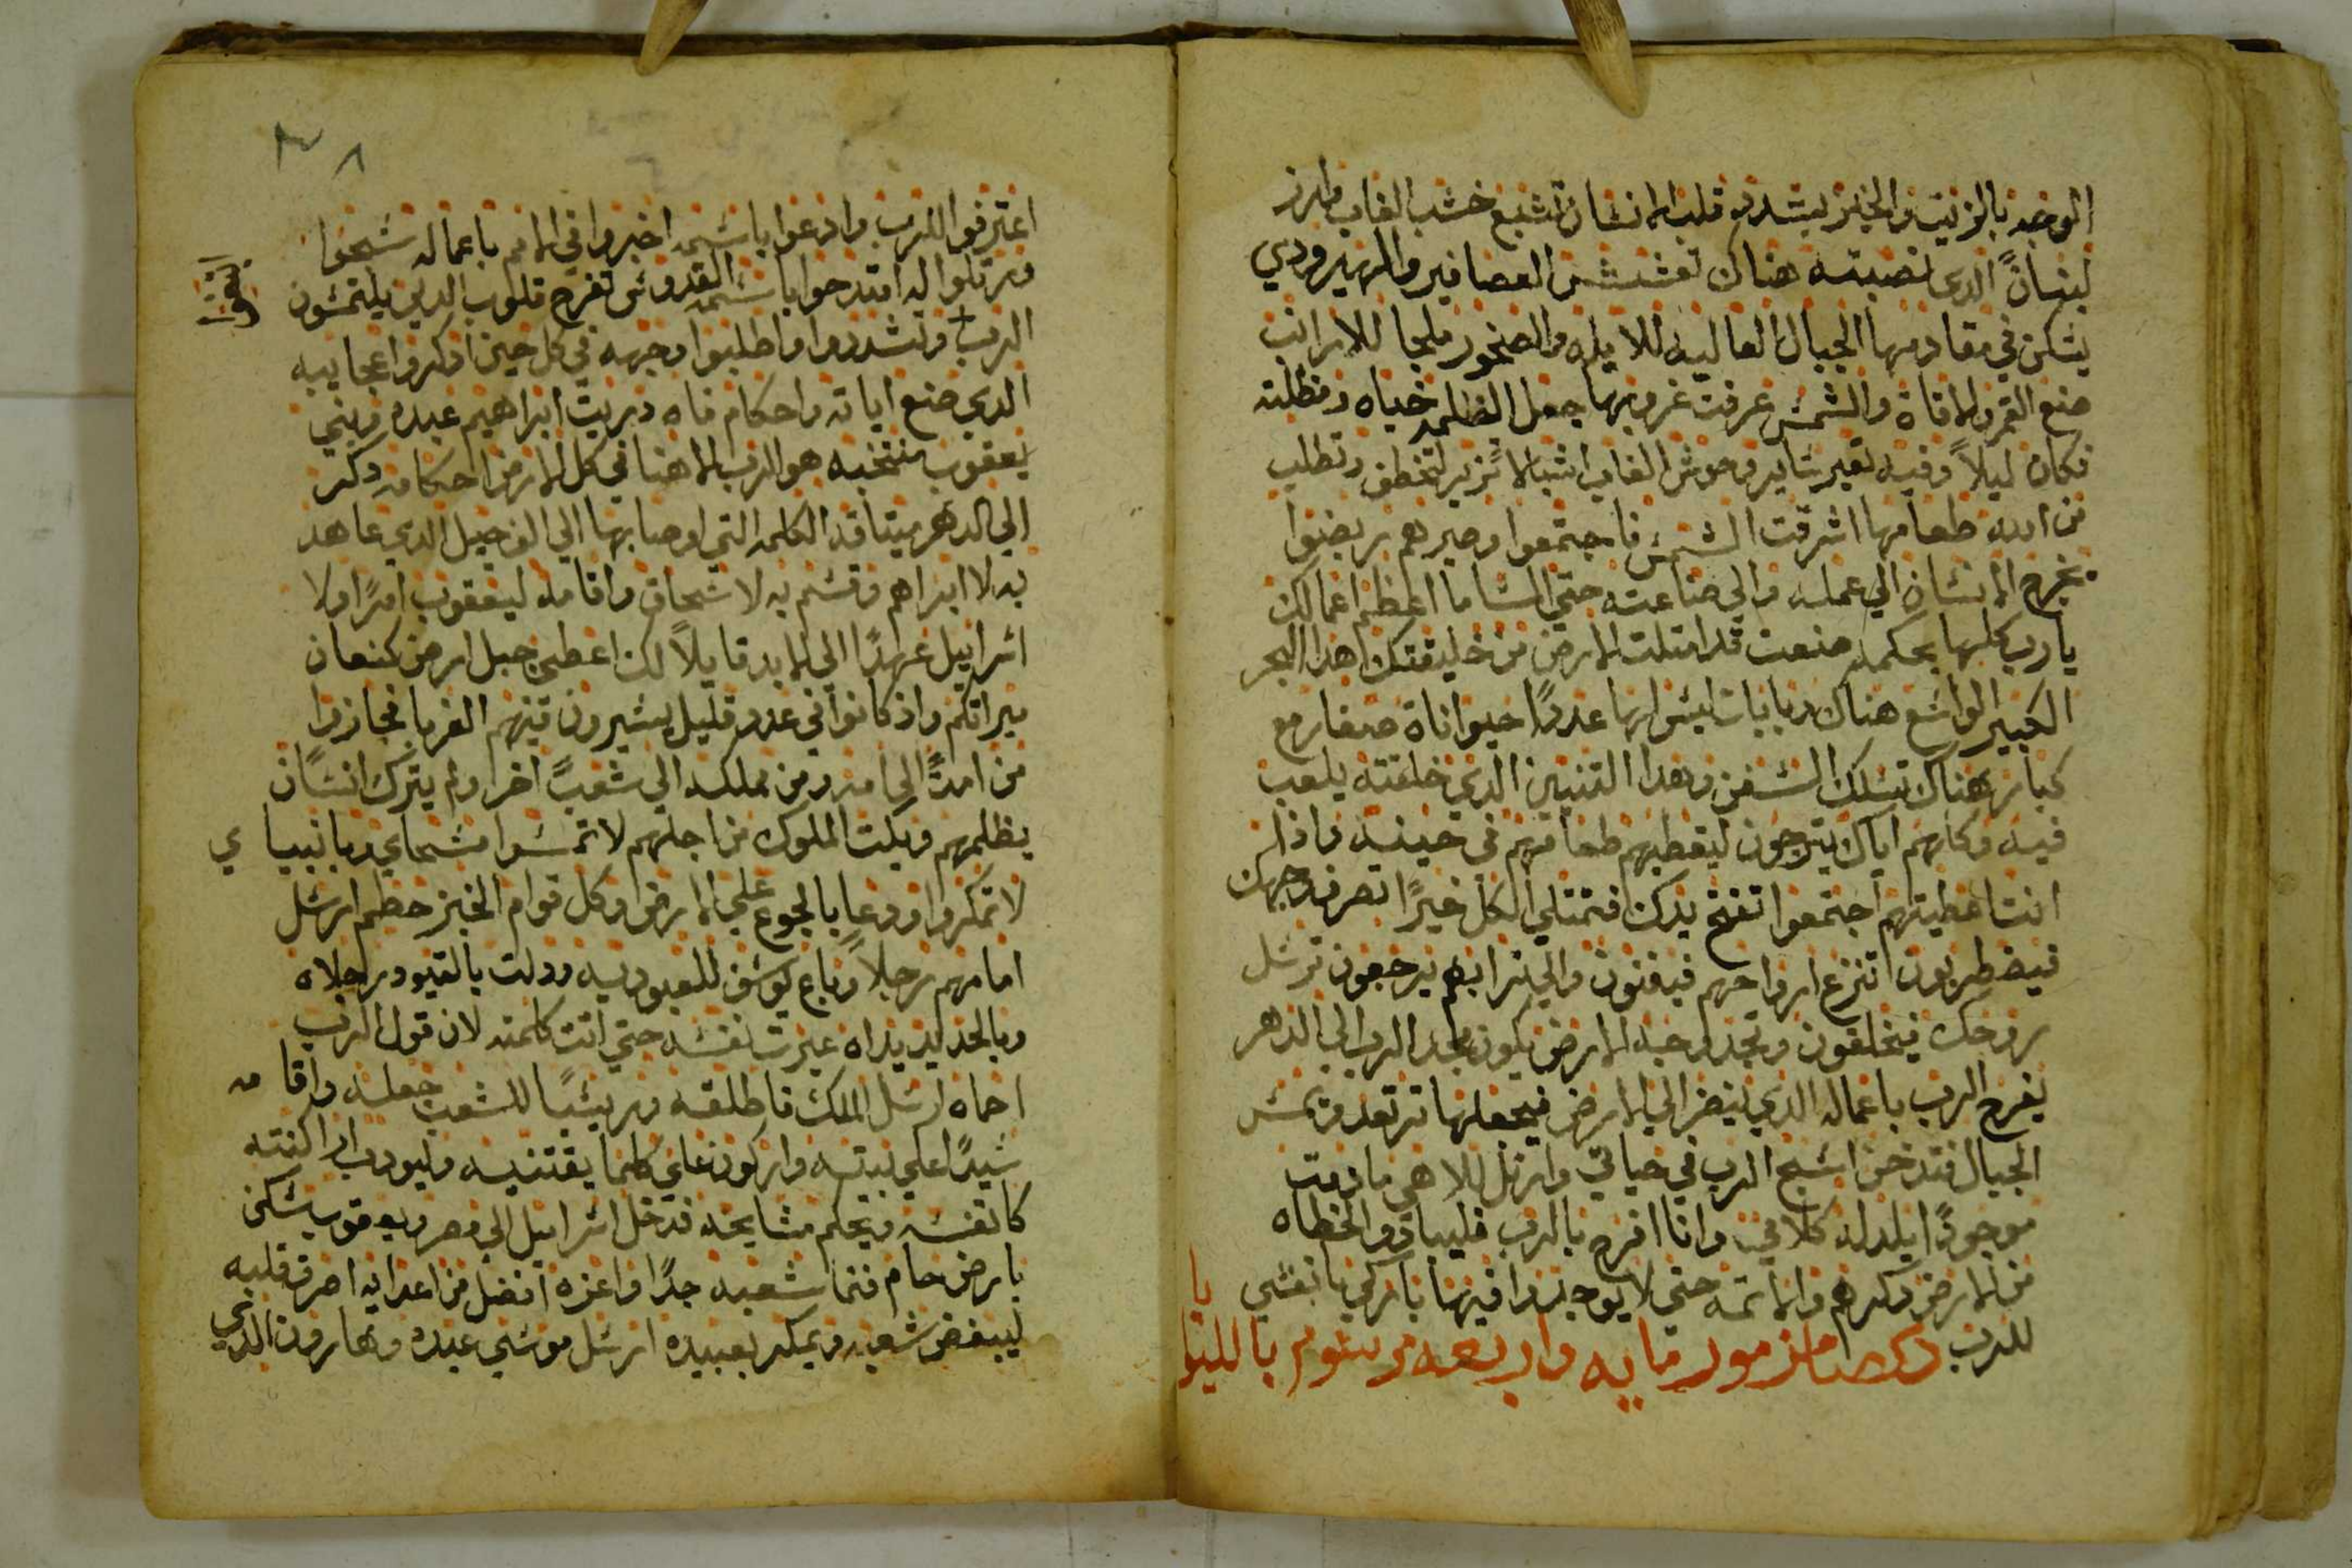 الوجه بالزيت والخبز يشدد قلب الانسان تشبع خشب الغاب وارز
لبنانً الدى نصبته هناك تعشش العصافير والهيرودي
يسكن في مقادمها الجبال العاليه للايله والصخور ملجا للارانب
صنع القمر لاوقاة والشمش عرفت غروبها جعل الظلمه خباه وظلته
فكان ليلاً وفيه تعبر ساير وحوش الغاب اشبالا تزير لتخطف وتطلب
من الله طعامها اشرقت الشمش فاجتمعوا وصيرهم ربضوا
يخرج الانسان الي عمله والي صناعته حتي المسا ما اعظم اعمالك
يارب كلها بحكمه صنعت قد امتلت الارض من خليقتك هدا البحر
الكبير الواسع هناك دبابات ليس لها عددًا حيواناة صغار مع
كبار هناك تسلك السفن وهدا التنين الدي خلقته يلعب
فيه وكلهم اياك يترجون ليعطيهم طعامهم في حينه واذا
انت اعطيتهم اجتمعوا تفتح يدك فتمتلي الكل خيرًا تصرف وجهك
فيضطربون تنزع ارواحهم فيفنون والي ترابهم يرجعون ترسل
روحك فيخلقون وتجدد وجه الارض يكون مجد الرب الي الدهر
يفرح الرب باعماله الدي ينضر الي الارض فيجعلها ترتعد ويمس
الجبال فتدخن اسبح الرب في حياتي وارتل للاهي مادمت
موجودًا يلدله كلامي وانا افرح بالرب فليبادوا الخطاه
من الارض وكرهم والاتمه حتي لا يوجدوا فيها باركي يا نفسي
للرب مزمور مايه واربعه مرسوم بالليلويا
اعترفوا للرب وادعوا باسمه اخبروا في الامم باعماله سبحوا
ورتلوا له امتدحوا باسمه القدوس تفرح قلوب الدين يلتمسون
الرب وتشددوا واطلبوا وجهه في كل حين ادكروا عجايبه
الدي صنع اياته واحكام فاه دريت ابراهيم عبده وبني
يعقوب منتخبه هو الرب الاهنا في كل الارض احكامه دكر
الي الدهر ميتاقه الكلمه التي اوصا بها الي الف جيل الدي عاهد
به لابراهم وقسم به لاسحاق واقامه ليعقوب امرًا ولا
اسراييل عهدًا الي الابد قايلاً لك اعطي جبل ارض كنعان
ميراتكم واذ كانوا في عدد قليل يسيرون فيهم الغربا فجازوا
من امةً الي امه ومن مملكه الي شعبً اخر ولم يترك انسان
يظلمهم وبكت الملوك من اجلهم لا تمسوا مسحاي وبانبيا ي
لا تمكروا ودعا بالجوع علي الارض وكل قوام الخبز حطم ارسل
امامهم رجلاً وباع يوسف للعبوديه ودلت بالقيود رجلاه
وبالحديد يداه عبرت نفسه حتي اتت كلمته لان قول الرب
احماه ارسل الملك فاطلقه وريسًا للشعب جعله واقامه
سيدًا علي بيته واركون علي كلما يقتنيه وليودب اراكنته
كانفسه ويحكم مشايخه فدخل اسراييل الي مصر ويعقوب سكن
بارض حام فنما شعبه جدًا واعزه افضل من اعدايه اصرف قلبه
ليبغض شعبه ويمكر بعبيده ارسل موسي عبده وهارون الدي